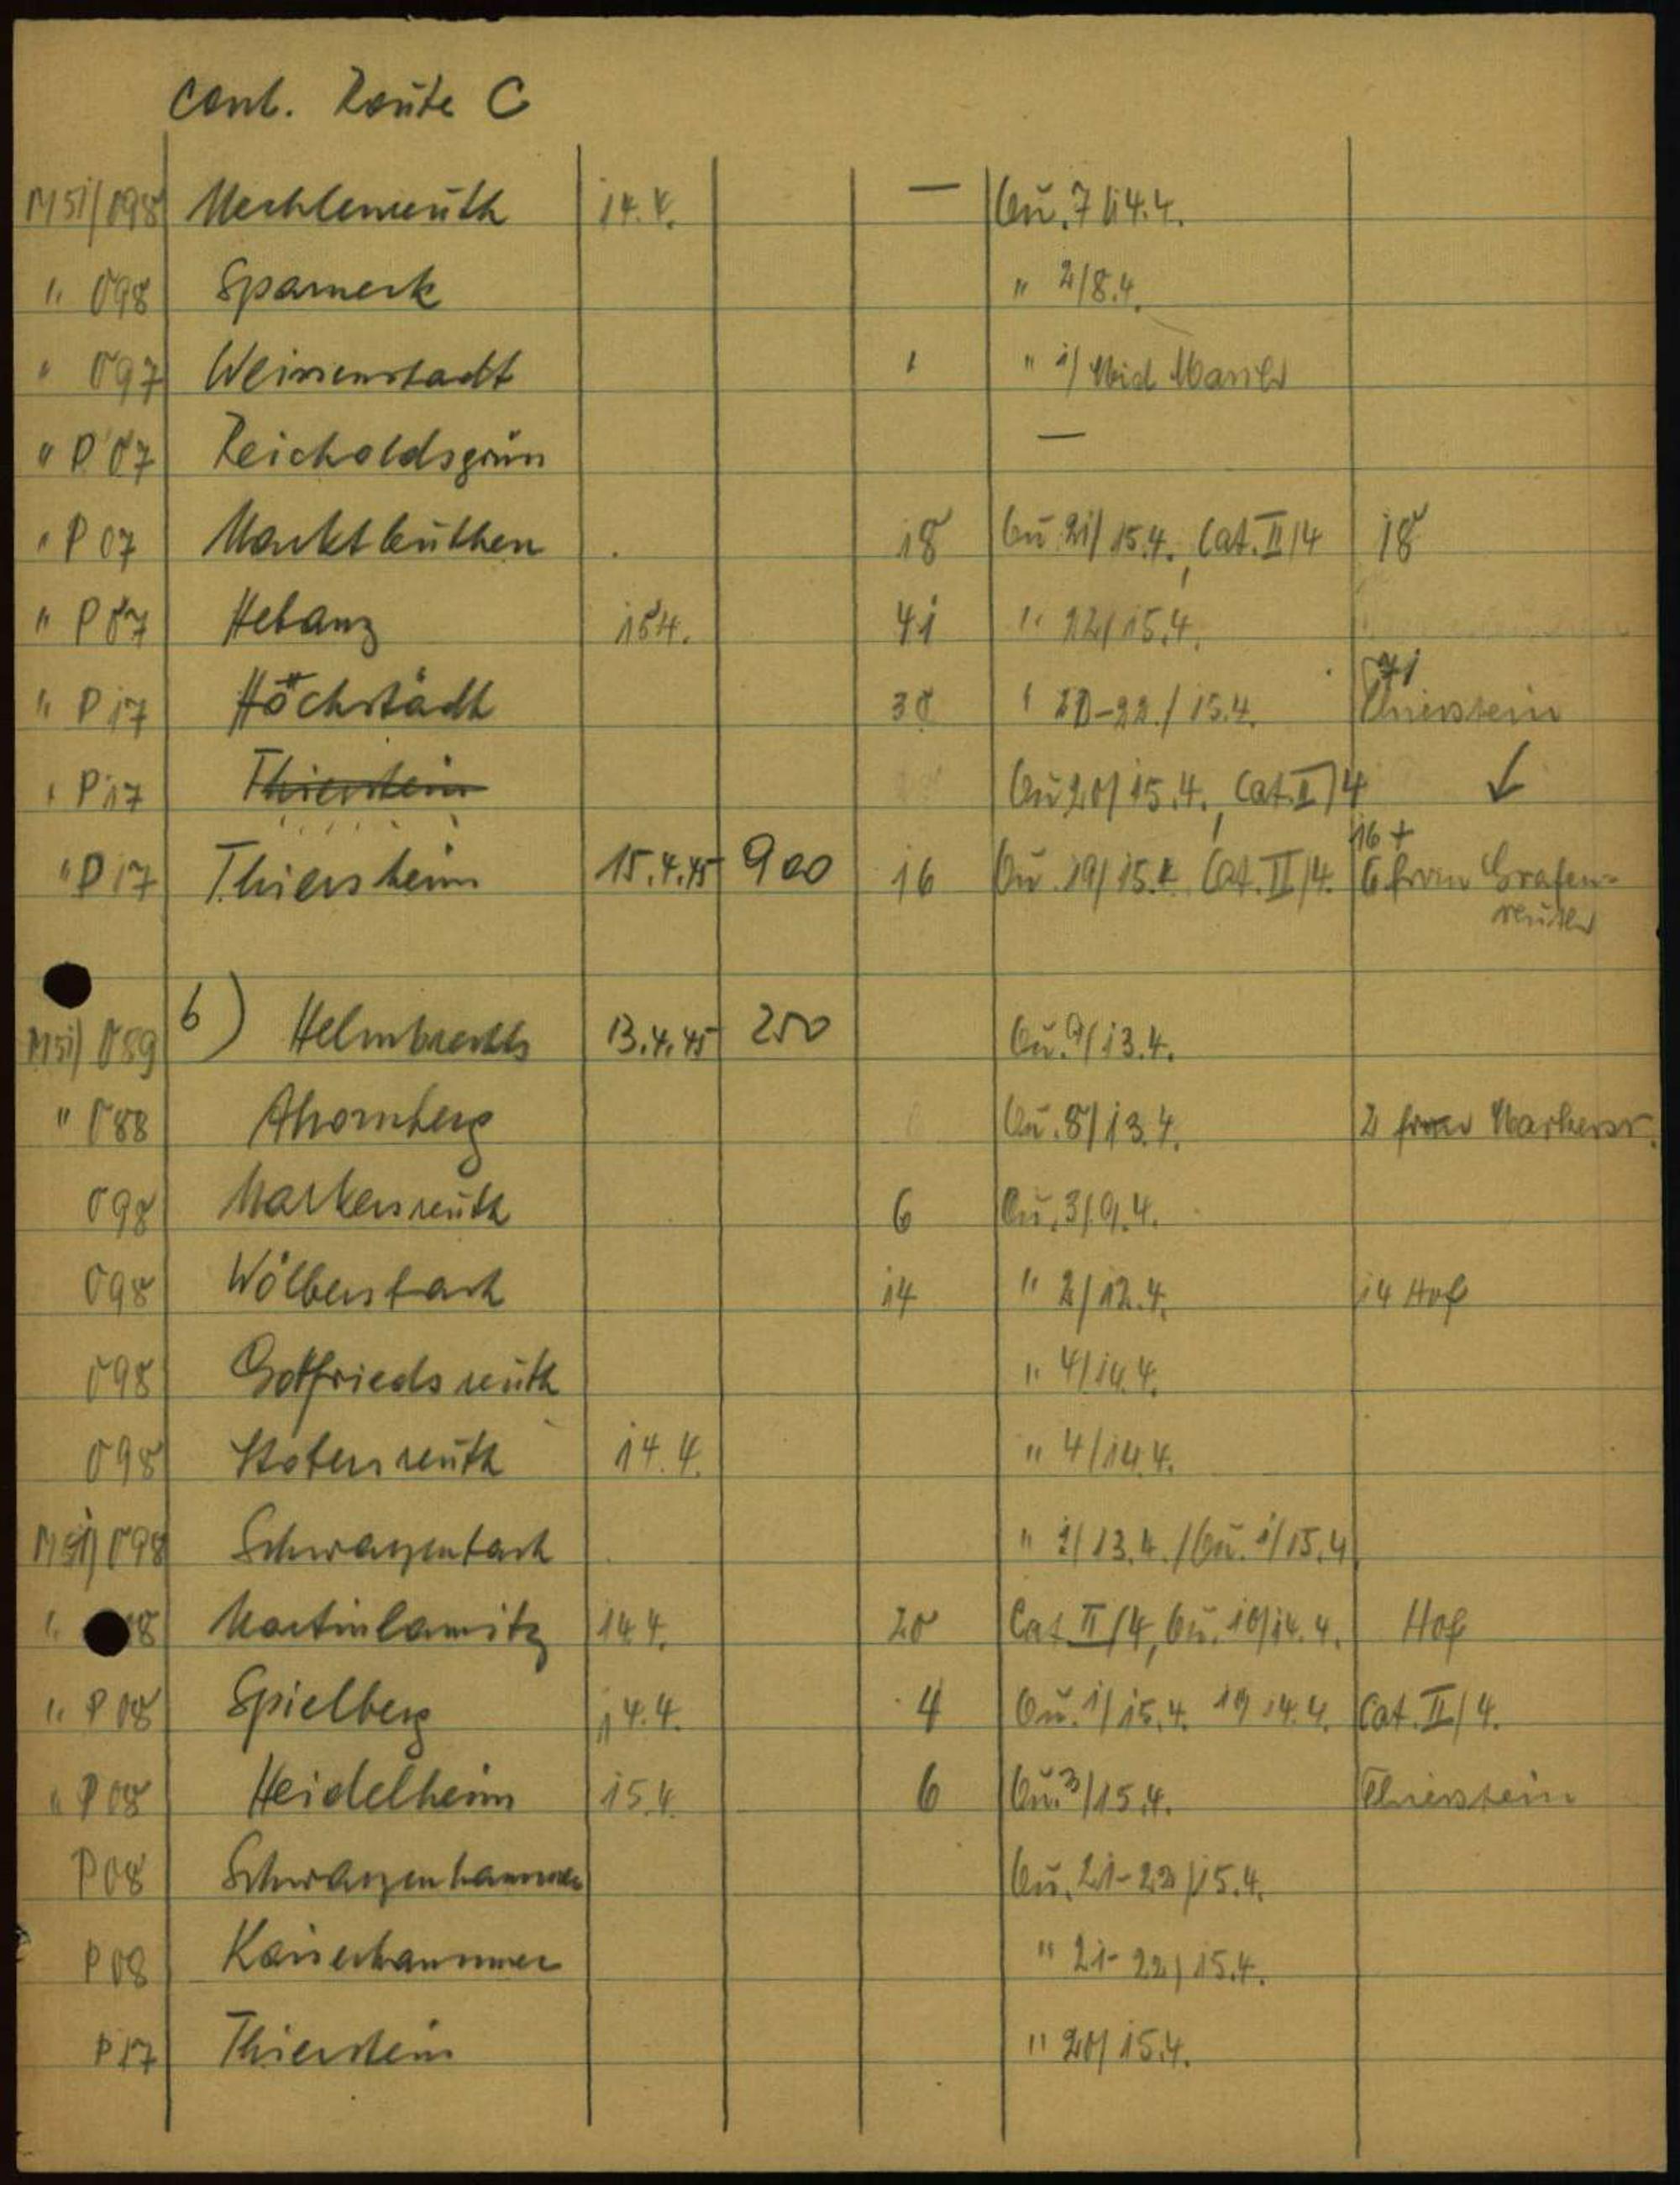 cont. Route C
M51/O98 Mechlenreuth 14.4. — Bü. 7/14.4.
" O98 Sparneck " 2/8.4.
" O97 Weissenstadt 1 " 1/ Mid March
" P07 Reicholdsgrün —
" P07 Marktleuthen 18 Bü 21/15.4., Cat. II/4 18
" P07 Hebanz 15.4. 41 " 22/15.4.
" P17 Höchstädt 30 " 20-22./15.4. 71 Thierstein
" P17 Thierstein Bü 20/15.4., Cat. II/4 ↓
" P17 Thiersheim 15.4.45 900 16 Bü. 19/15.4. Cat. II/4. 16 + 6 from Grafen-
reuth
M51/O89 b) Helmbrechts 13.4.45 250 Bü. 9/13.4.
" O88 Ahornberg Bü. 8/13.4. 2 from Markersr.
O98 Markersreuth 6 Bü. 3/9.4.
O98 Wölbersbach 14 " 2/12.4. 14 Hof
O98 Gottfriedsreuth " 4/14.4.
O98 14.4. " 4/14.4.
M51/O98 Schwarzenbach " 2/13.4. / Bü. 1/15.4
" 08 Martinlamitz 14.4. 20 Cat II/4, Bü. 10/14.4. Hof
" P08 Spielberg 14.4. 4 Bü. 1/15.4. 14.4. Cat. II/4.
" P08 Heidelheim 15.4. 6 Bü. 3/15.4. Thierstein
P08 Schwarzenhammer Bü. 21-22/15.4.
P08 Kaiserhammer " 21-22/15.4.
P17 Thierstein " 20/15.4.